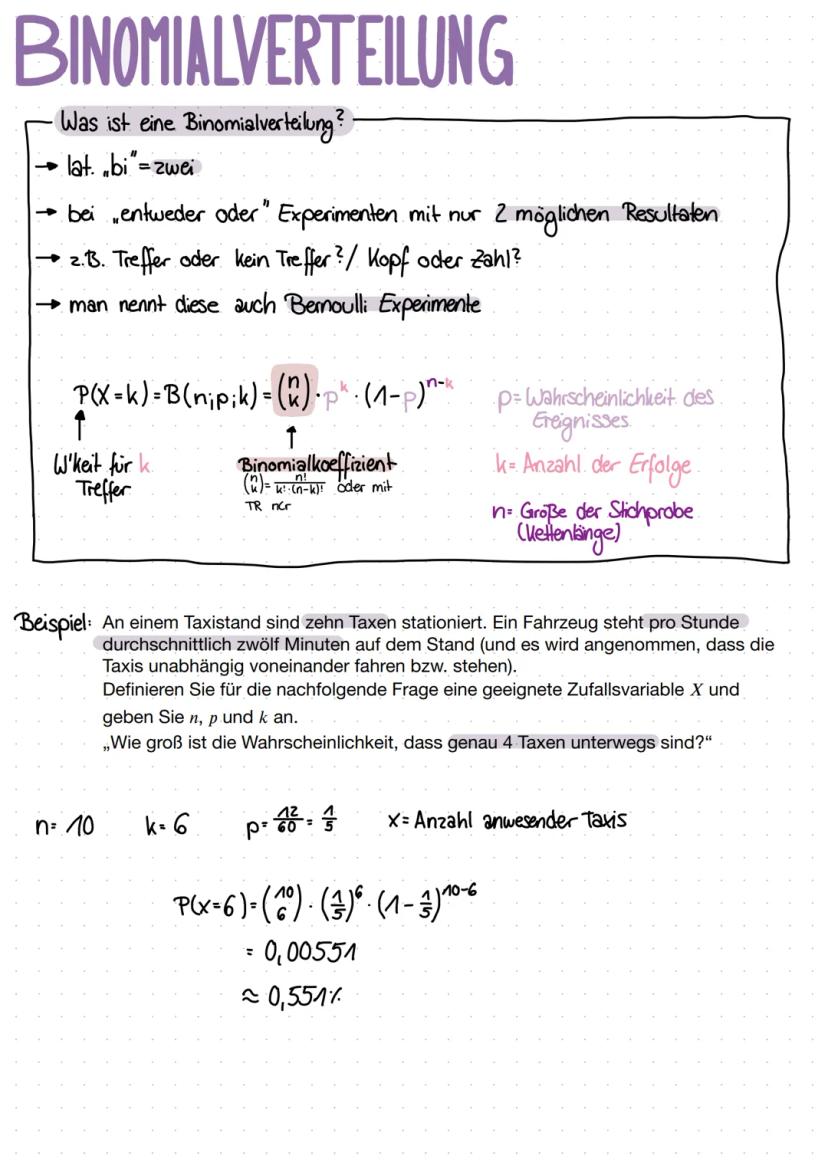 BINOMIALVERTEILUNG
Was ist eine Binomialverteilung?
→ lat. „bi" = zwei
→ bei „entweder oder" Experimenten mit nur 2 möglichen Resultaten
→ z.B. Treffer oder kein Treffer? / Kopf oder Zahl?
→ man nennt diese auch Bernoulli Experimente
P(X=k) = B(n;p;k) = (n k) · p^k · (1-p)^n-k
p= Wahrscheinlichkeit des
Ereignisses
W'keit für k
Treffer
Binomialkoeffizient
(n k) = n! / k!·(n-k)! oder mit
TR nCr
k= Anzahl der Erfolge
n= Größe der Stichprobe
(Kettenlänge)
Beispiel: An einem Taxistand sind zehn Taxen stationiert. Ein Fahrzeug steht pro Stunde
durchschnittlich zwölf Minuten auf dem Stand (und es wird angenommen, dass die
Taxis unabhängig voneinander fahren bzw. stehen).
Definieren Sie für die nachfolgende Frage eine geeignete Zufallsvariable X und
geben Sie n, p und k an.
„Wie groß ist die Wahrscheinlichkeit, dass genau 4 Taxen unterwegs sind?“
n= 10 k= 6 p= 12/60 = 1/5 X= Anzahl anwesender Taxis
P(X=6) = (10 6) · (1/5)^6 · (1-1/5)^10-6
= 0,00551
≈ 0,551%